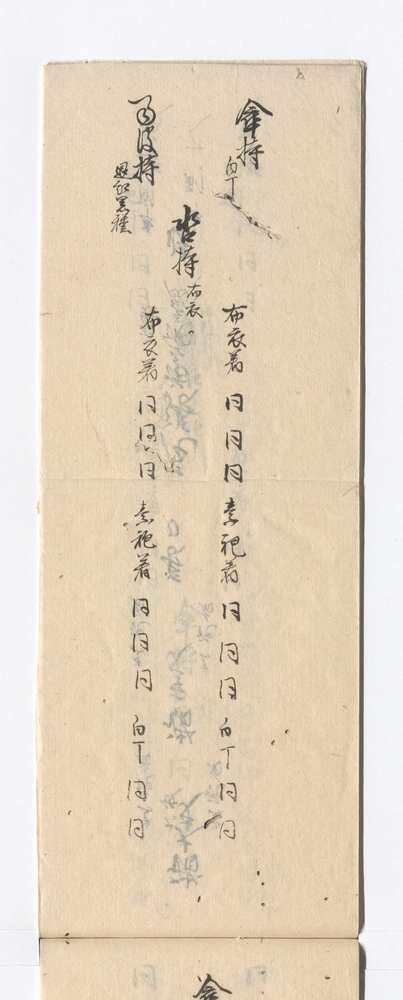 傘持 白丁
布衣着 同 同 同 素袍着 同 同 同 白丁 同 同
沓持 布衣
布衣着 同 同 同 素袍着 同 同 同 白丁 同 同
持